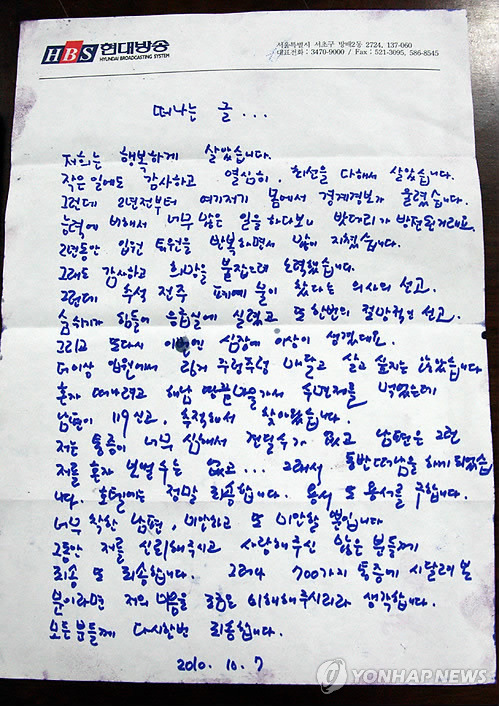 HBS 현대방송
HYUNDAI BROADCASTING SYSTEM
서울특별시 서초구 방배2동 2724, 137-060
대표전화 : 3470-9000 / Fax : 521-3095, 586-8545
떠나는 글...
저희는 행복하게 살았습니다.
작은일에도 감사하고 열심히, 최선을 다해서 살았습니다.
그런데 2년전부터 여기저기 몸에서 경계경보가 울렸습니다.
능력에 비해서 너무 많은 일을 하다보니 밧데리가 방전된거래요.
2년동안 입원 퇴원을 반복하면서 많이 지쳤습니다.
그래도 감사하고 희망을 붙잡으려 노력했습니다.
그런데 추석 전주 폐에 물이 찼다는 의사의 선고.
숨쉬기가 힘들어 응급실에 실렸고 또한번의 절망적인 선고.
그리고 또다시 이번엔 심장에 이상이 생겼데요.
더이상 입원해서 링거 주렁주렁 매달고 살고 싶지는 않았습니다
혼자 떠나려고 해남 땅끝마을가서 수면제를 먹었는데
남편이 119신고, 추적해서 찾아왔습니다.
저는 통증이 너무 심해서 견딜수가 없고 남편은 그런
저를 혼자 보낼수는 없고... 그래서 동반떠남을 하게 되었습
니다. 호텔에는 정말 죄송합니다. 용서 또 용서를 구합니다.
너무 착한 남편, 미안하고 또 미안할 뿐입니다
그동안 저를 신뢰해주시고 사랑해주신 많은 분들께
죄송 또 죄송합니다. 그러나 700가지 통증에 시달려본
분이라면 저의 마음을 조금은 이해해주시리라 생각합니다.
모든분들께 다시한번 죄송합니다.
2010. 10. 7
YONHAP NEWS